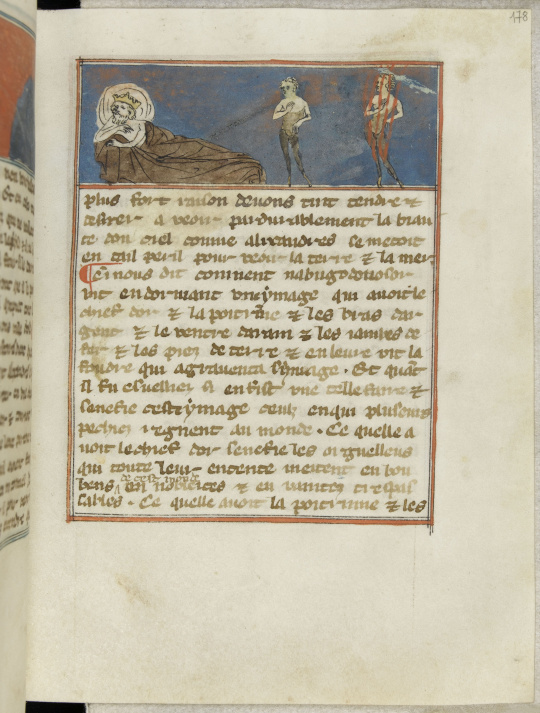 178
plus fort raison devons tuit tendre et
desirer a veoir pardurablement la biau
te dou ciel comme alixandres se metoit
en tail peril pour veoir la terre & la mer
Ci nous dit comment nabugodonosor
vit en dormant une ymage qui avoit le
chief dor & la poitrine & les bras dar
gent & le ventre darain & les iambes de
fer & les piez de terre & en leure vit la
foudre qui agraventa lymage. Et quant
il fu esveilliez si en fist une telle faire &
senefie cest ymage ceulz en qui plusours
pechiez regnent au monde. Ce quelle a
voit le chief dor senefie les orguelleus
qui toute leur entente metent en bou
bens de cest monde en nobleites & en vanitez trespas
sables. Ce quelle avoit la poitrinne & les